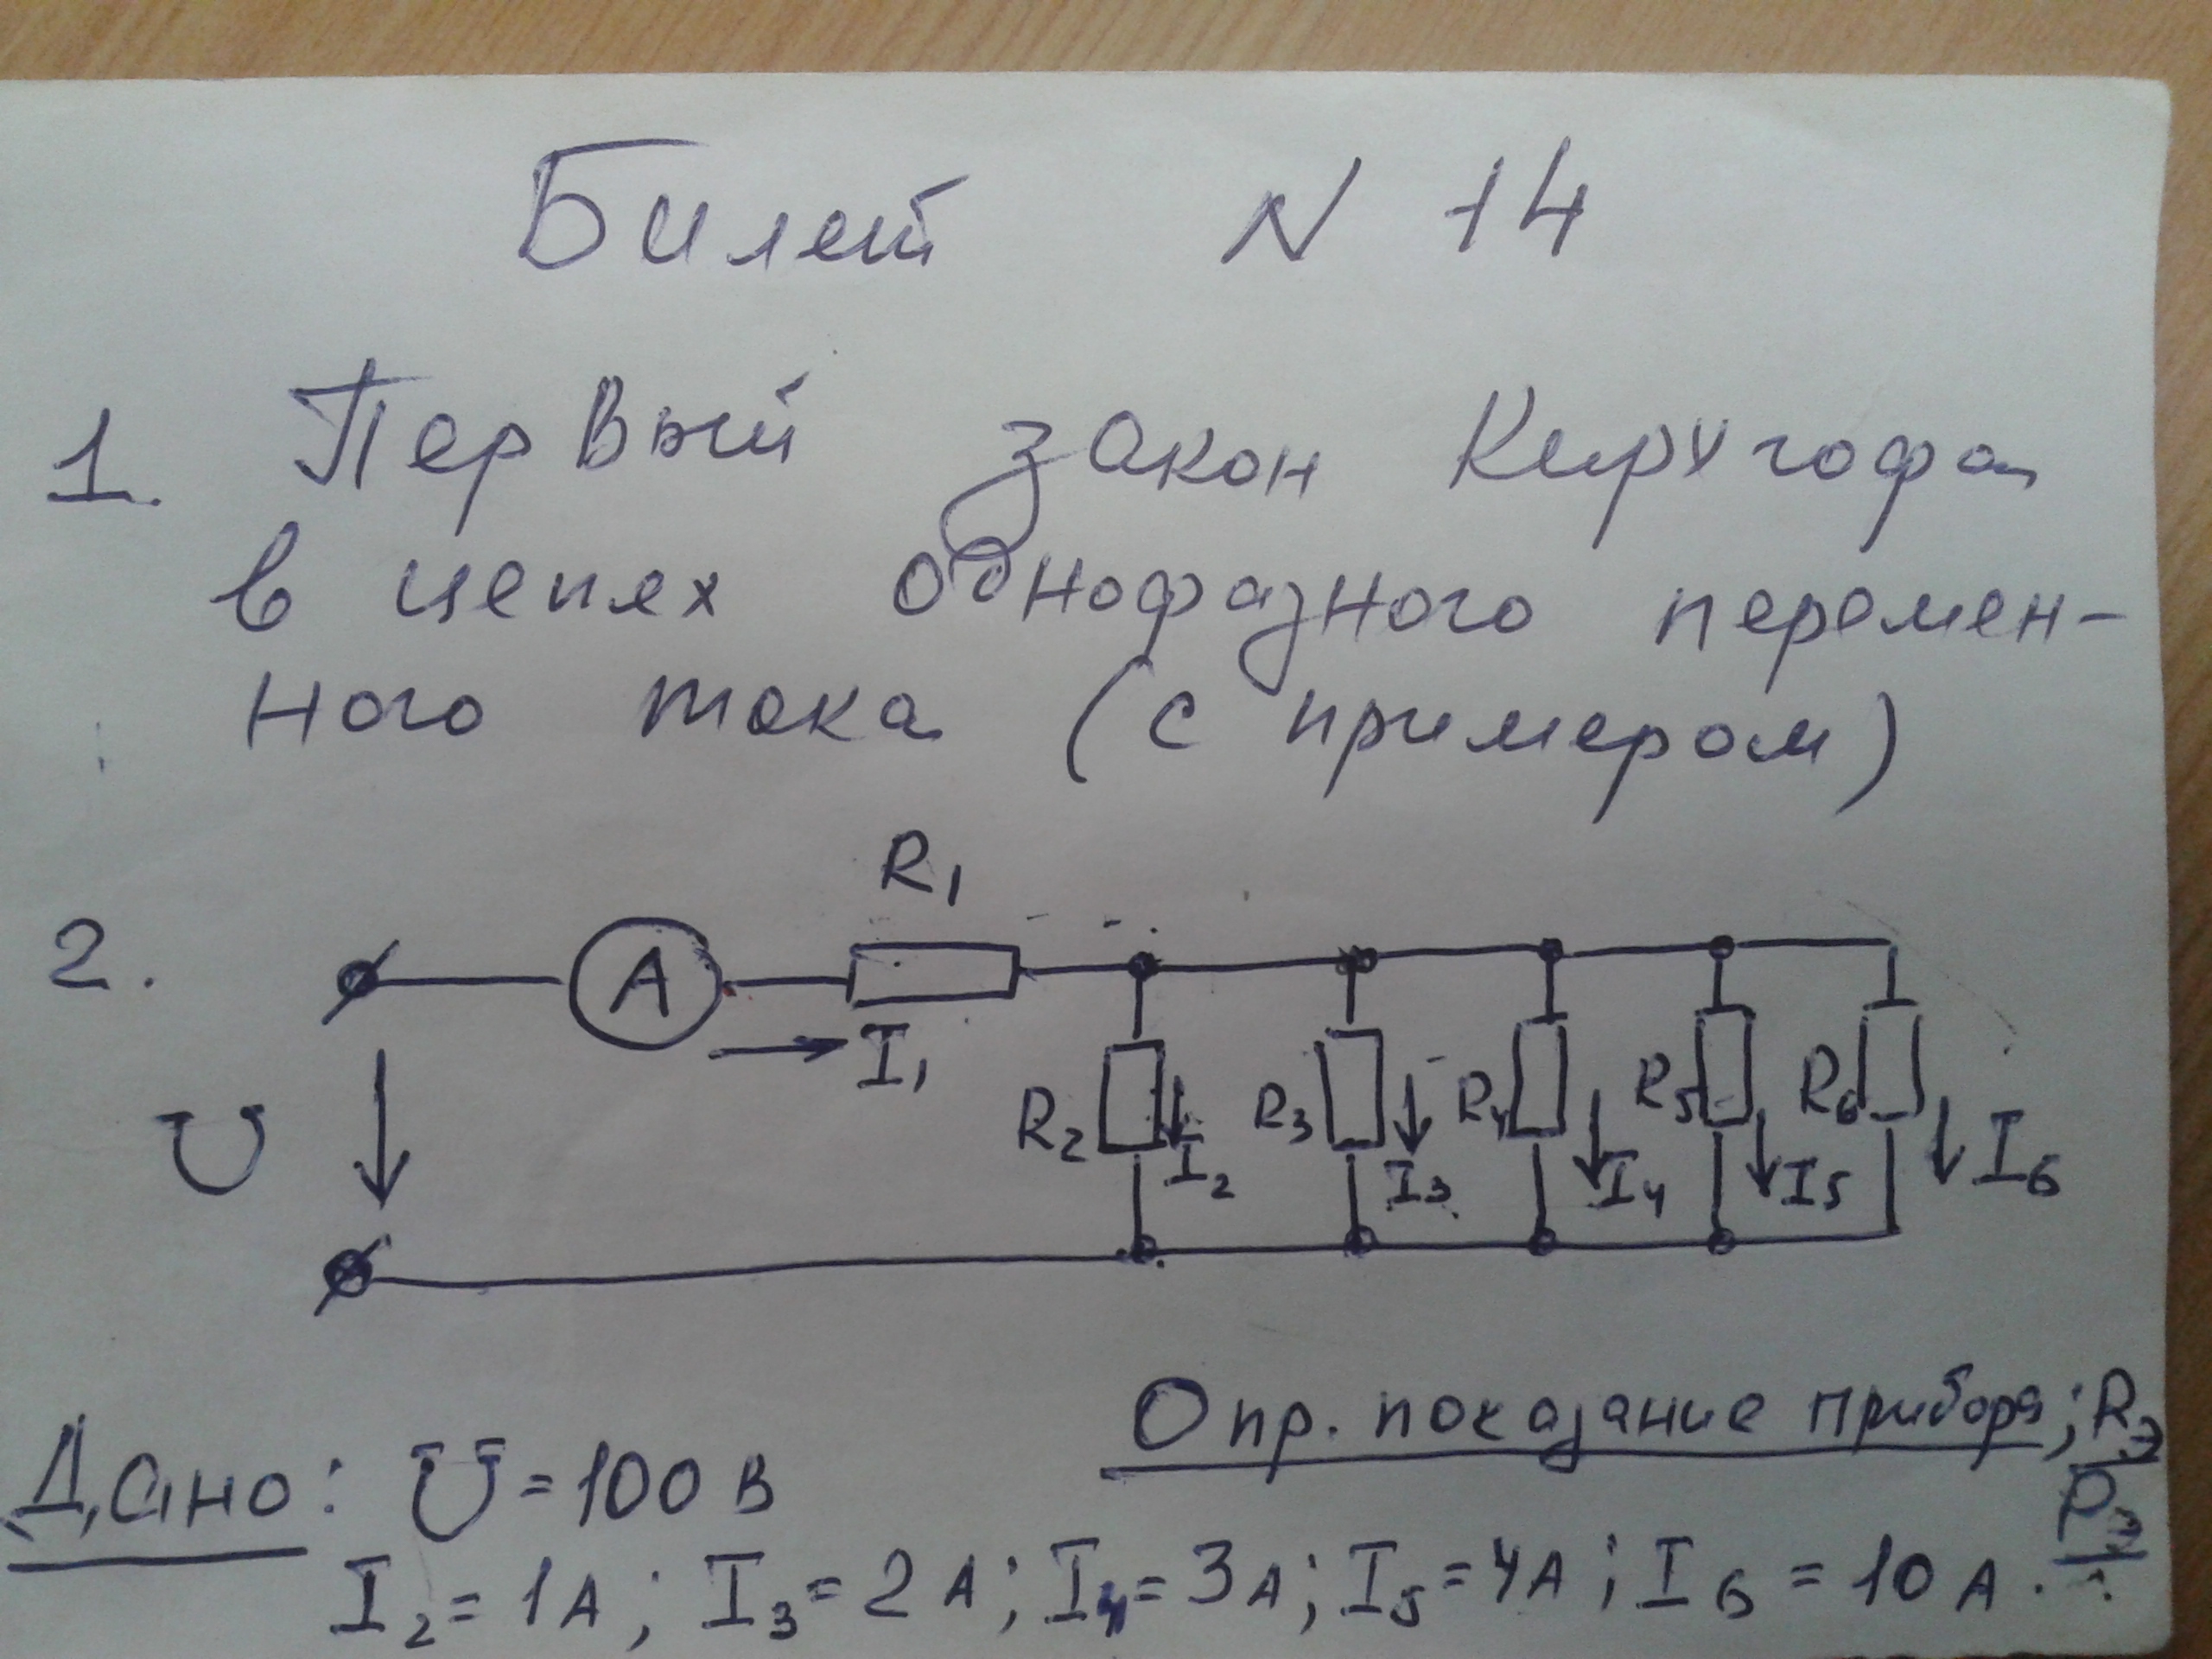 Билет N 14
1. Первый закон Кирхгофа
в цепях однофазного перемен-
ного тока (с примером)
R1
2.
A
I1
U
R2 I2 R3 I3 R4 I4 R5 I5 R6 I6
Опр. показание прибора; Rэ
Дано: U = 100 В Pэ
I2 = 1А; I3 = 2А; I4 = 3А; I5 = 4А; I6 = 10А. ?